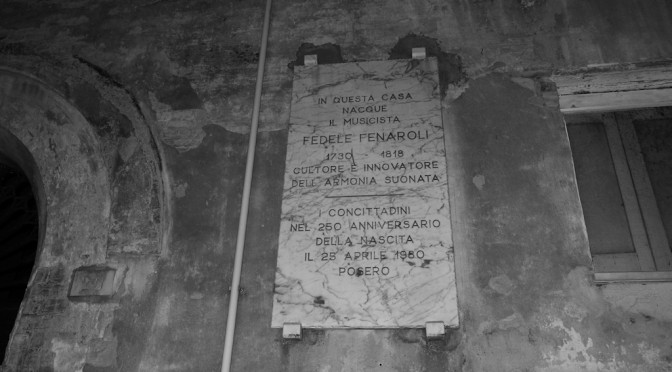 IN QUESTA CASA
NACQUE
IL MUSICISTA
FEDELE FENAROLI
1730 1818
CULTORE E INNOVATORE
DELL'ARMONIA SUONATA
I CONCITTADINI
NEL 250 ANNIVERSARIO
DELLA NASCITA
IL 25 APRILE 1980
POSERO